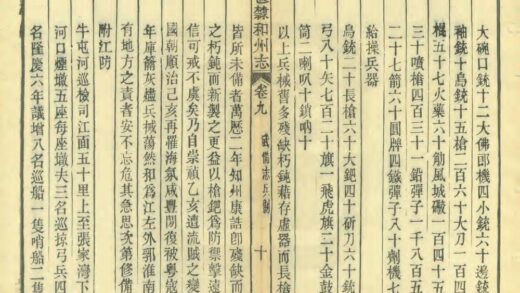 大碗口銃十二大佛郎機四小銃六十邊
袖銃十鳥銃十五槍二百六十大刀一百四
棍五十七火藥六十觔風城礮一百四十五
三十噴槍四百三十一鉛彈子一千八百五
二十七箭六十圓牌四鐵彈子八十劑機七
給操兵器
鳥銃二十長槍六十大鈀四十斫刀六十
弓八十矢七百二十旗一飛虎旗二十金鼓
筒二喇叭十鎖吶十
以上兵械舊多殘缺朽鈍藉存虛器而長槍
隸和州志 卷九 武備志兵制 十
皆所未備者萬歷二年知州康誥卽殘缺而
之朽鈍而新製之更益以槍鈀為防禦擊遠
信可戒不虞矣乃自崇禎乙亥遭流賊之變
國朝順治己亥再罹海氛咸豐閒復被粵寇
年庫藏灰燼兵械蕩然和為江左外郛淮南
有地方之責者安不忘危其急思次第修備
附江防
牛屯河巡檢司江面五十里上至張家灣下
河口煙墩五座每座墩夫三名巡掠弓兵四
名隆慶六年議增八名巡船一隻哨船二隻